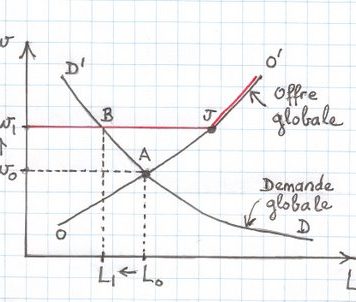 D'
O'
Offre
globale
B
J
A
O
Demande
globale
D
L₁ ← L₀
L